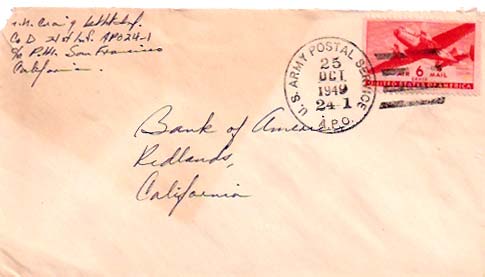 Craig
Co D 21st Inf. APO 24-1
c/o P.M. San Francisco
California.
U.S. ARMY POSTAL SERVICE
25
OCT
1949
24-1
A.P.O.
6
CENTS
MAIL
UNITED STATES OF AMERICA
Bank of America
Redlands,
California